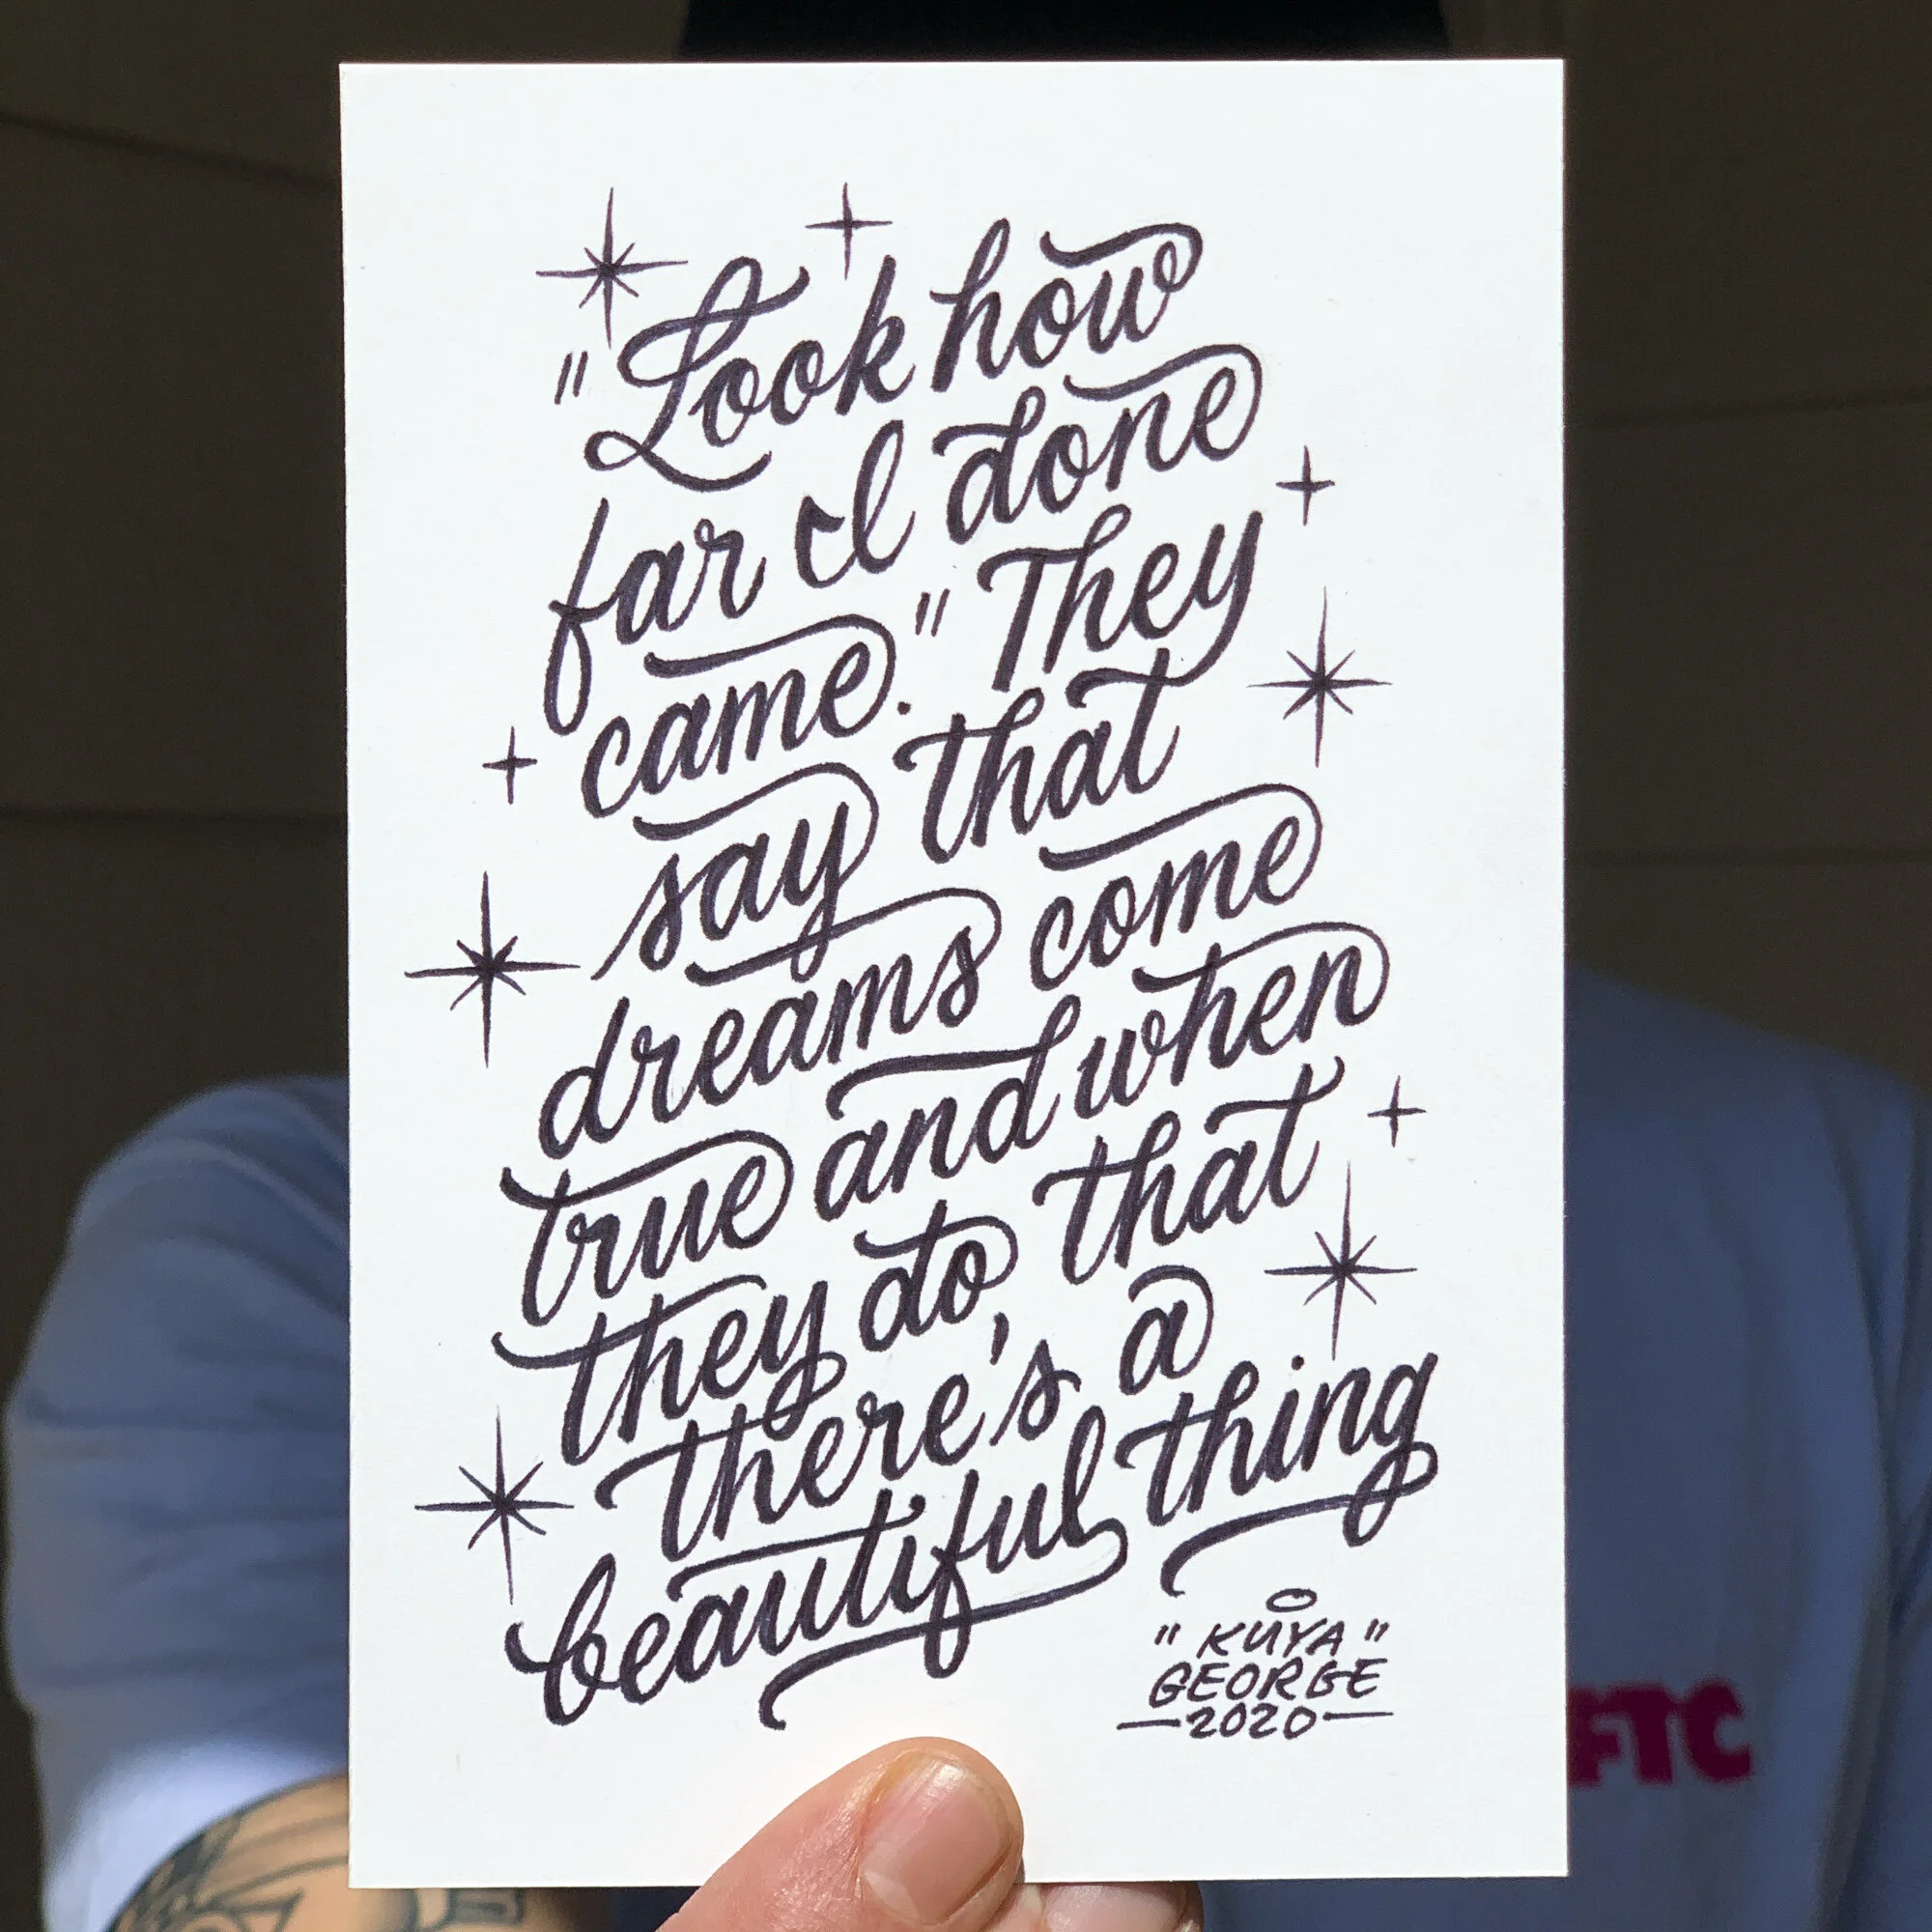 "Look how
far I done
came." They
say that
dreams come
true and when
they do, that
there's a
beautiful thing
"KUYA"
GEORGE
2020
FTC